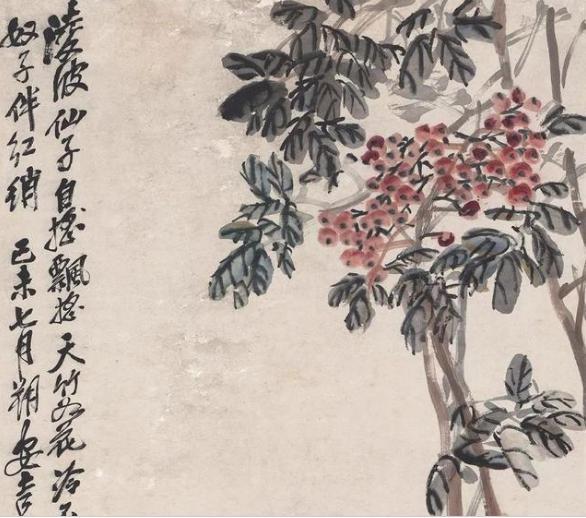 凌波仙子自搖飄搖天竹如花冷不
奴子伴紅綃 己未七月朔安吉